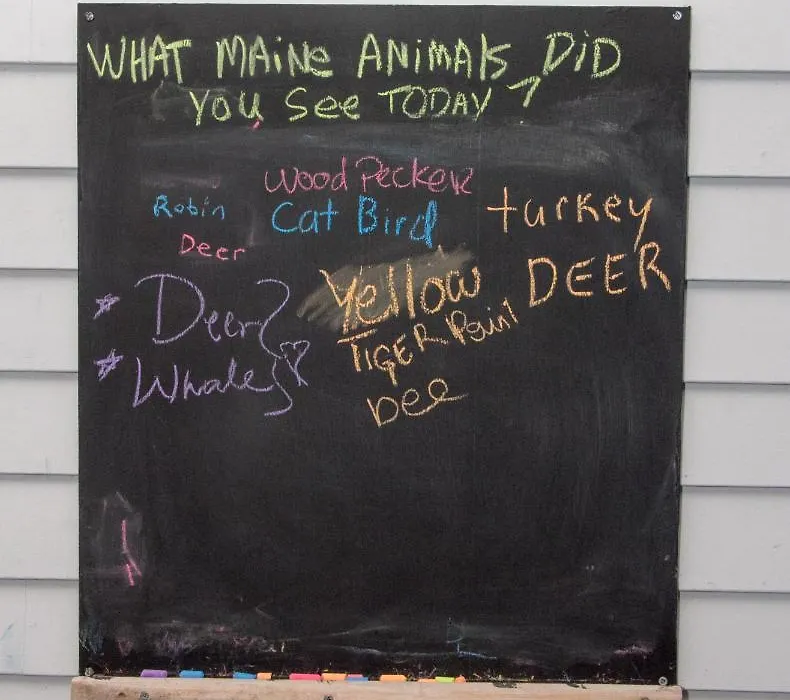 WHAT MAINE ANIMALS DID
YOU See TODAY ?
Wood Pecker
Robin
Cat Bird
turkey
Deer
DEER
Yellow
TIGER
Deer
Whales
Dee